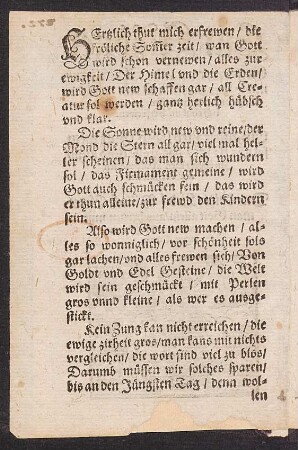 HErtzlich thut mich erfrewen / die
fröliche Som̃er zeit / wan Gott
wird schon vernewen / alles zur
ewigkeit / Der Him̃el vnd die Erden /
wird Gott new schaffen gar / all Cre-
atur sol werden / gantz herlich hübsch
vnd klar.
Die Sonne wird new vnd reine / der
Mond die Stern all gar / viel mal hel-
ler scheinen / das man sich wundern
sol / das Firmament gemeine / wird
Gott auch schmücken fein / das wird
er thun alleine / zur frewd den Kindern
sein.
Also wird Gott new machen / al-
les so wonniglich / vor schönheit sols
gar lachen / vnd alles frewen sich / Von
Goldt vnd Edel Gesteine / die Welt
wird sein geschmückt / mit Perlen
gros vnnd kleine / als wer es ausge-
stickt.
Kein Zung kan nicht erreichen / die
ewige zirheit gros / man kans mit nichts
vergleichen / die wort sind viel zu blos /
Darumb müssen wir solches sparen /
bis an den Jüngsten Tag / denn wol-
len